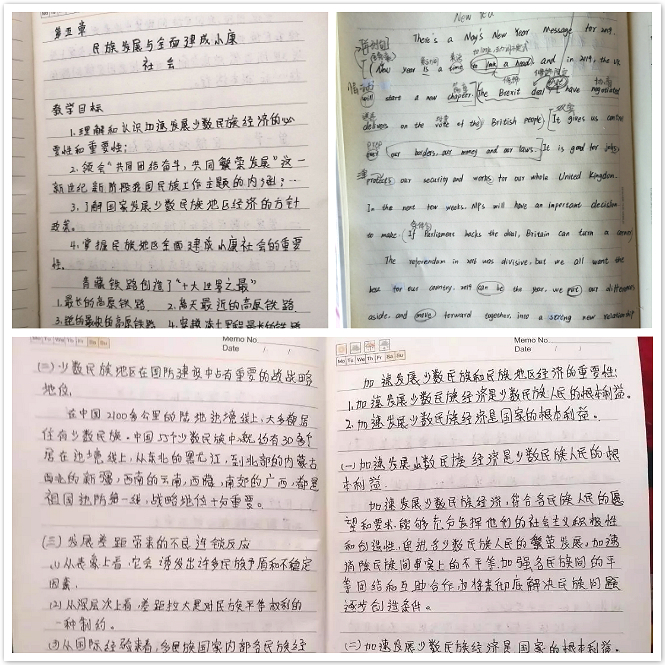 第五章
民族发展与全面建成小康
社会
教学目标
1.理解和认识加速发展少数民族经济的必
要性和重要性;
2.领会“共同团结奋斗,共同繁荣发展”这一
新世纪新阶段我国民族工作主题的内涵;…
3.了解国家发展少数民族地区经济的方针
政策。
4.掌握民族地区全面建成小康社会的重要
性。
青藏铁路创造了“十大世界之最”
1.最长的高原铁路. 2.离天最近的高原铁路.
New Year
There's a May's New Year Message for 2019.
(New year is a time to look a head, and in 2019, the UK
will start a new chapter. The Brexit deal have negotiated
delivers on the vote of the British people) It gives us control
our borders, our money and our laws. It is good for jobs,
protects our security and works for our whole United Kingdom.
In the next few weeks, MPs will have an important decision
to make. If Parliament backs the deal, Britain can turn a corner
The referendum in 2016 was divisive, but we all want the
best for our country. 2019 can be the year, we put our differences
aside, and move forward together, into a strong new relationship
Mo Tu We Th Fr Sa Su
Memo No.
Date / /
(二)少数民族地区在国防建设中占有重要的战略
地位.
在中国2100多公里的陆地边境线上,大多都居
住有少数民族。中国55个少数民族中就有30多个
居在边境线上,从东北的黑龙江,到北部的内蒙古
西北的新疆,西南的云南,西藏,南部的广西,都是
祖国边防第一线,战略地位十分重要。
(三)发展差距带来的不良连锁反应
(1)从表象上看,它会诱发出许多民族矛盾和不稳定
因素.
(2)从深层次上看,差距拉大是对民族平等权利的
一种制约。
(3)从国际经验来看,多民族国家内部各民族经
Mo Tu We Th Fr Sa Su
Memo No.
Date / /
加速发展少数民族和民族地区经济的重要性:
1.加速发展少数民族经济是少数民族人民的根本利益。
2.加速发展少数民族经济是国家的根本利益。
(一)加速发展少数民族经济是少数民族人民的根
本利益
加速发展少数民族经济,符合各民族人民的愿
望和要求,能够充分发挥他们的社会主义积极性
和创造性,促进各少数民族人民的繁荣发展,加速
消除民族间事实上的不平等,加强各民族间的平
等团结和互助合作,为将来彻底解决民族问题
逐步创造条件。
(二)加速发展少数民族经济是国家的根本利益。